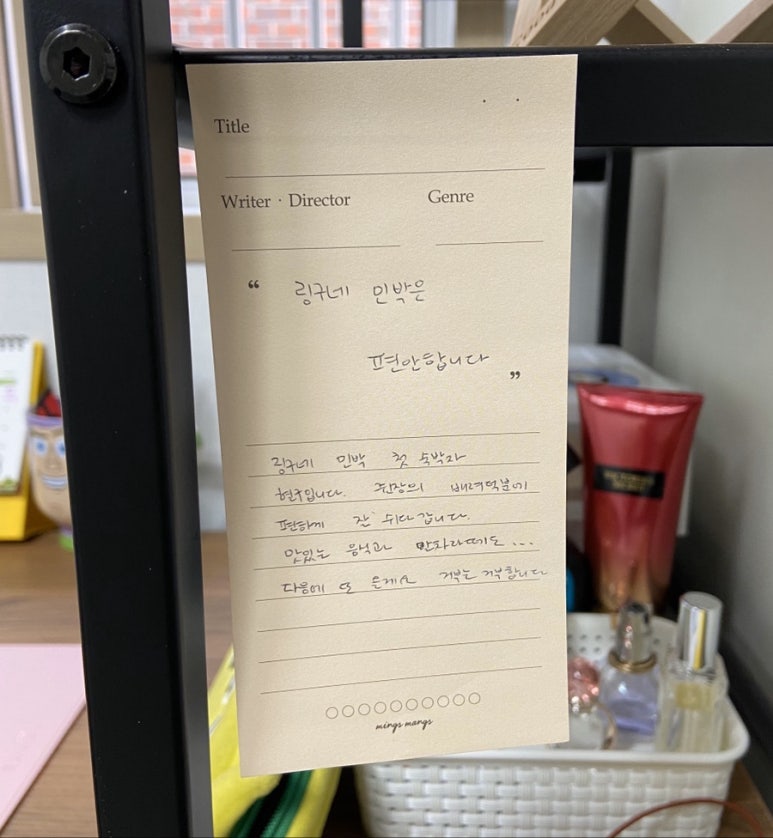 Title
Writer · Director Genre
“ 링구네 민박은
편안합니다 ”
링구네 민박 첫 숙박자
현우입니다. 쥔장의 배려덕분에
편하게 잘 쉬다 갑니다.
맛있는 음식과 만차라떼도...
다음에 또 올게요 거부는 거부합니다
mings mangs